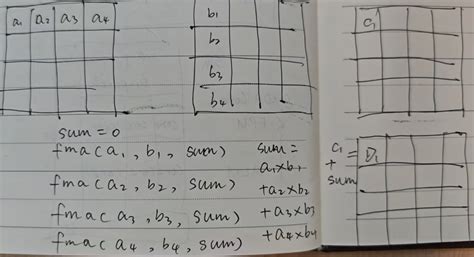 a₁ a₂ a₃ a₄
b₁
b₂
b₃
b₄
c₁
sum = 0
fma(a₁, b₁, sum)
fma(a₂, b₂, sum)
fma(a₃, b₃, sum)
fma(a₄, b₄, sum)
sum =
a₁×b₁
+a₂×b₂
+a₃×b₃
+a₄×b₄
c₁
+
sum
= D₁